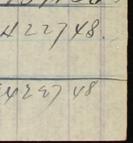 422748.
422748